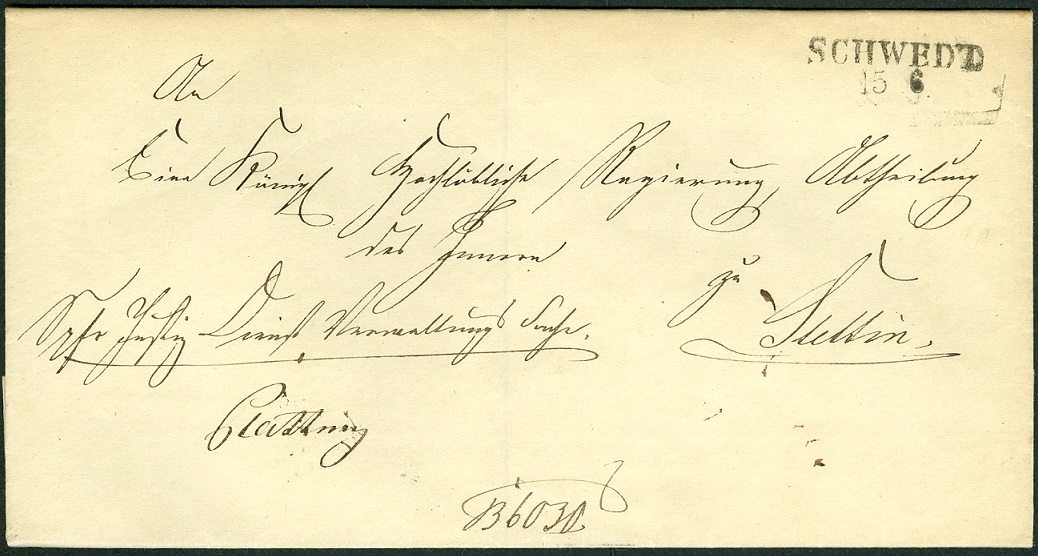 SCHWEDT
15 6
An
Eine Königl Hochlöbliche Regierung, Abtheilung
des Innern
zu
Stettin.
Justiz Dienst Verwaltungs Sache.
B6030